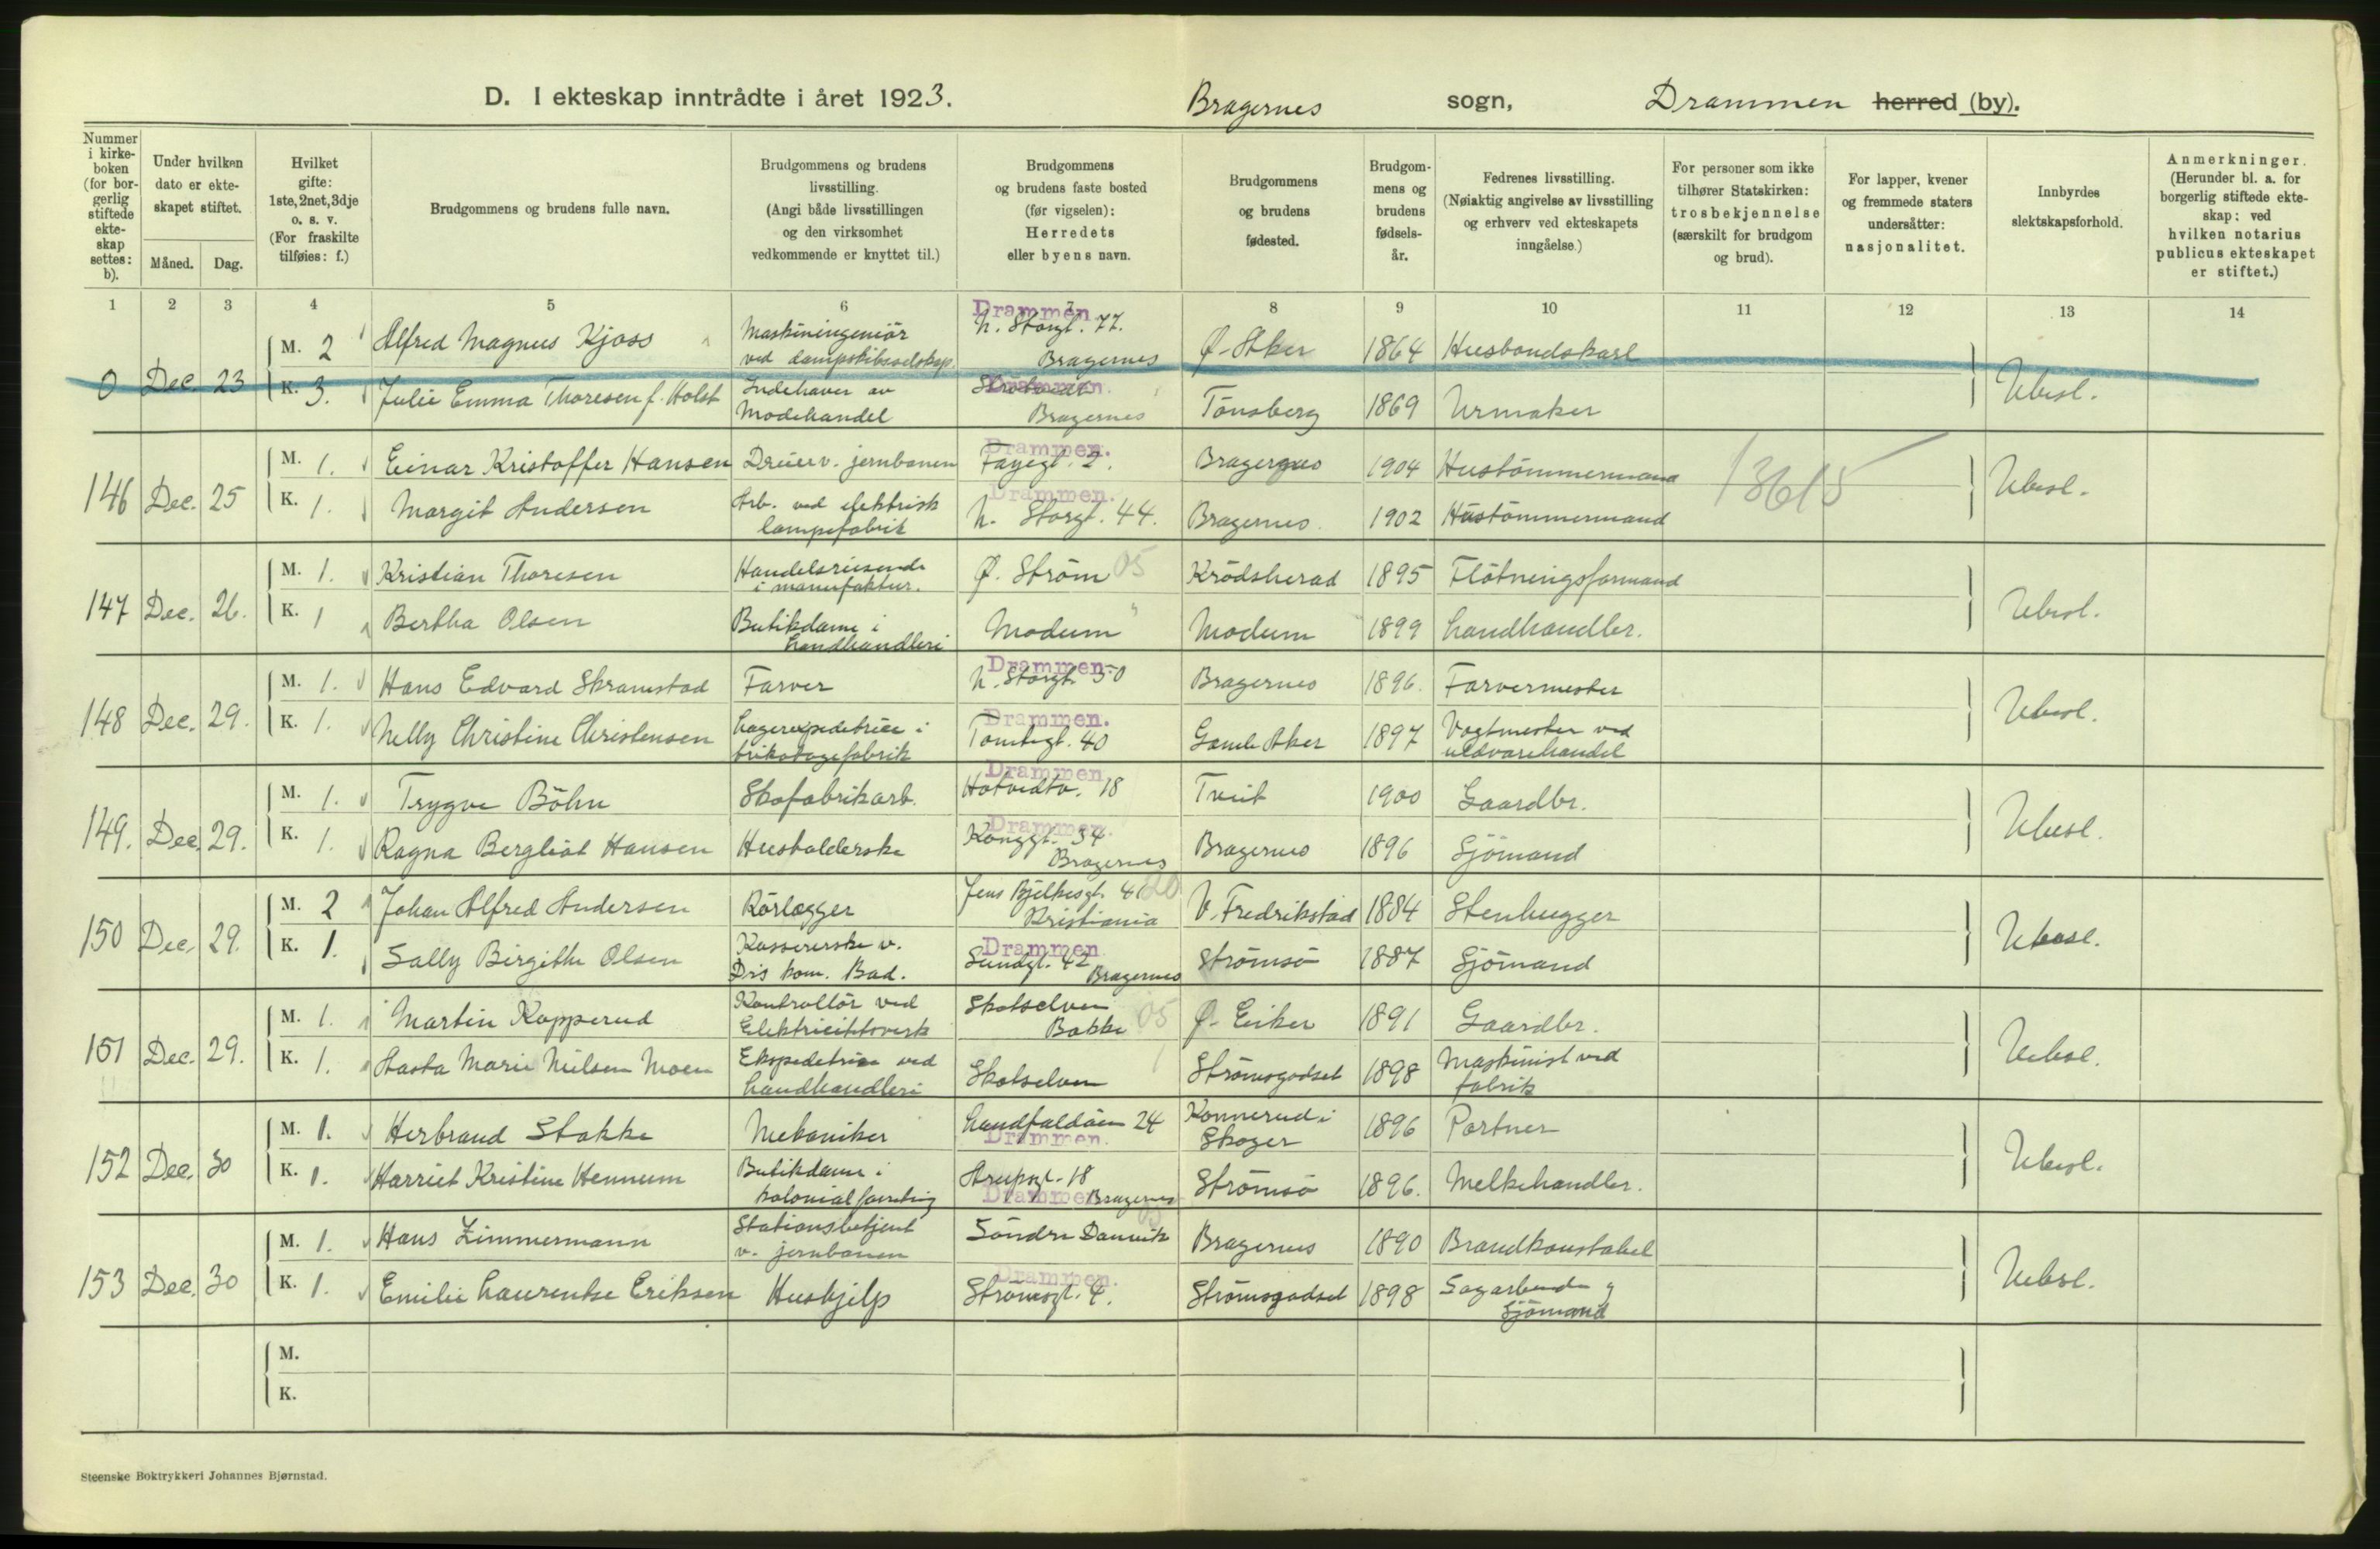 D. I ekteskap inntrådte i året 1923. Bragernes sogn, Drammen herred (by).
Nummer i kirkeboken (for borgerlig stiftede ekteskap settes: b).
Under hvilken dato er ekteskapet stiftet.
Måned. Dag.
Hvilket gifte: 1ste, 2net, 3dje o. s. v. (For fraskilte tilføies: f.)
Brudgommens og brudens fulle navn.
Brudgommens og brudens livsstilling. (Angi både livsstillingen og den virksomhet vedkommende er knyttet til.)
Brudgommens og brudens faste bosted (før vigselen): Herredets eller byens navn.
Brudgommens og brudens fødested.
Brudgommens og brudens fødselsår.
Fedrenes livsstilling. (Nøiaktig angivelse av livsstilling og erhverv ved ekteskapets inngåelse.)
For personer som ikke tilhører Statskirken: trosbekjennelse (særskilt for brudgom og brud).
For lapper, kvener og fremmede staters undersåtter: nasjonalitet.
Innbyrdes slektskapsforhold.
Anmerkninger. (Herunder bl. a. for borgerlig stiftede ekteskap: ved hvilken notarius publicus ekteskapet er stiftet.)
1 2 3 4 5 6 7 8 9 10 11 12 13 14
M. 2 Alfred Magnus Kjoss Maskiningeniör ved dampskibsselskap. Drammen N. Storgt. 77. Bragernes Ø. Aker 1864 Husbondskarl
0 Dec. 23 K. 3. Julie Emma Thoresen f. Holst Indehaver av Modehandel Drammen. Bragernes Tönsberg 1869 Urmaker Ubesl.
M. 1. Einar Kristoffer Hansen Dreier v. jernbanen Drammen. Fayegt. 2. Bragernes 1904 Hustömmermand 13615
146 Dec. 25 K. 1. Margit Andersen Arb. ved elektrisk lampefabrik Drammen. N. Storgt. 44. Bragernes. 1902 Hustömmermand Ubesl.
M. 1. Kristian Thoresen Handelsreisende i manufaktur. Ø. Ström 05 Krödsherad 1895 Flötningsformand
147 Dec. 26. K. 1 Bertha Olsen Butikdame i Landhandleri Modum Modum 1899 Landhandler. Ubesl.
M. 1. Hans Edvard Skramstad Farver Drammen. N. Storgt. 50 Bragernes 1896. Farvermester
148 Dec. 29. K. 1. Nelly Christine Christensen Lagerexpeditrice i trikotagefabrik Drammen. Tomtegt. 40 Gamle Aker 1897 Vogtmester ved uldvarehandel Ubesl.
M. 1. Trygve Böhn Skofabrikarb. Drammen Hotvedtv. 18 Tveit 1900 Gaardbr.
149. Dec. 29. K. 1. Ragna Bergliot Hansen Husholderske Drammen. Konggt. 34 Bragernes Bragernes 1896 Sjömand Ubesl.
M. 2 Johan Alfred Andersen Rörlægger Jens Bjelkesgt. 4 Kristiania V. Fredrikstad 1884 Stenhugger
150 Dec. 29. K. 1. Sally Birgithe Olsen Kassererske v. Drs kom. Bad. Drammen Sundgt. 42 Bragernes Strömsö 1887 Sjömand Ubesl.
M. 1. Martin Kopperud Kontrollör ved Elektricitetsverk Skotselven Bakke 05 Ø. Eiker 1891 Gaardbr.
151 Dec. 29. K. 1. Aasta Marie Nielsen Moen Ekspeditrice ved Landhandleri Skotselven Strömsgodset 1898 Maskinist ved fabrik Ubesl.
M. 1. Herbrand Stokke Mekaniker Landfaldöen 24 Drammen. Konnerud i Skoger 1896 Portner
152 Dec. 30 K. 1. Harriet Kristine Hennum Butikdame i kolonialforretning Arupsgt. 18 Drammen Bragernes Strömsö 1896. Melkehandler. Ubesl.
M. 1. Hans Zimmermann Stationsbetjent v. jernbanen Söndre Danvik Bragernes 1890 Brandkonstabel
153 Dec. 30 K. 1. Emilie Laurentse Eriksen Hushjelp Drammen. Strömsgt. 4. Strömsgodset 1898 Sagarbeider og Sjömand Ubesl.
M.
K.
Steenske Boktrykkeri Johannes Bjørnstad.